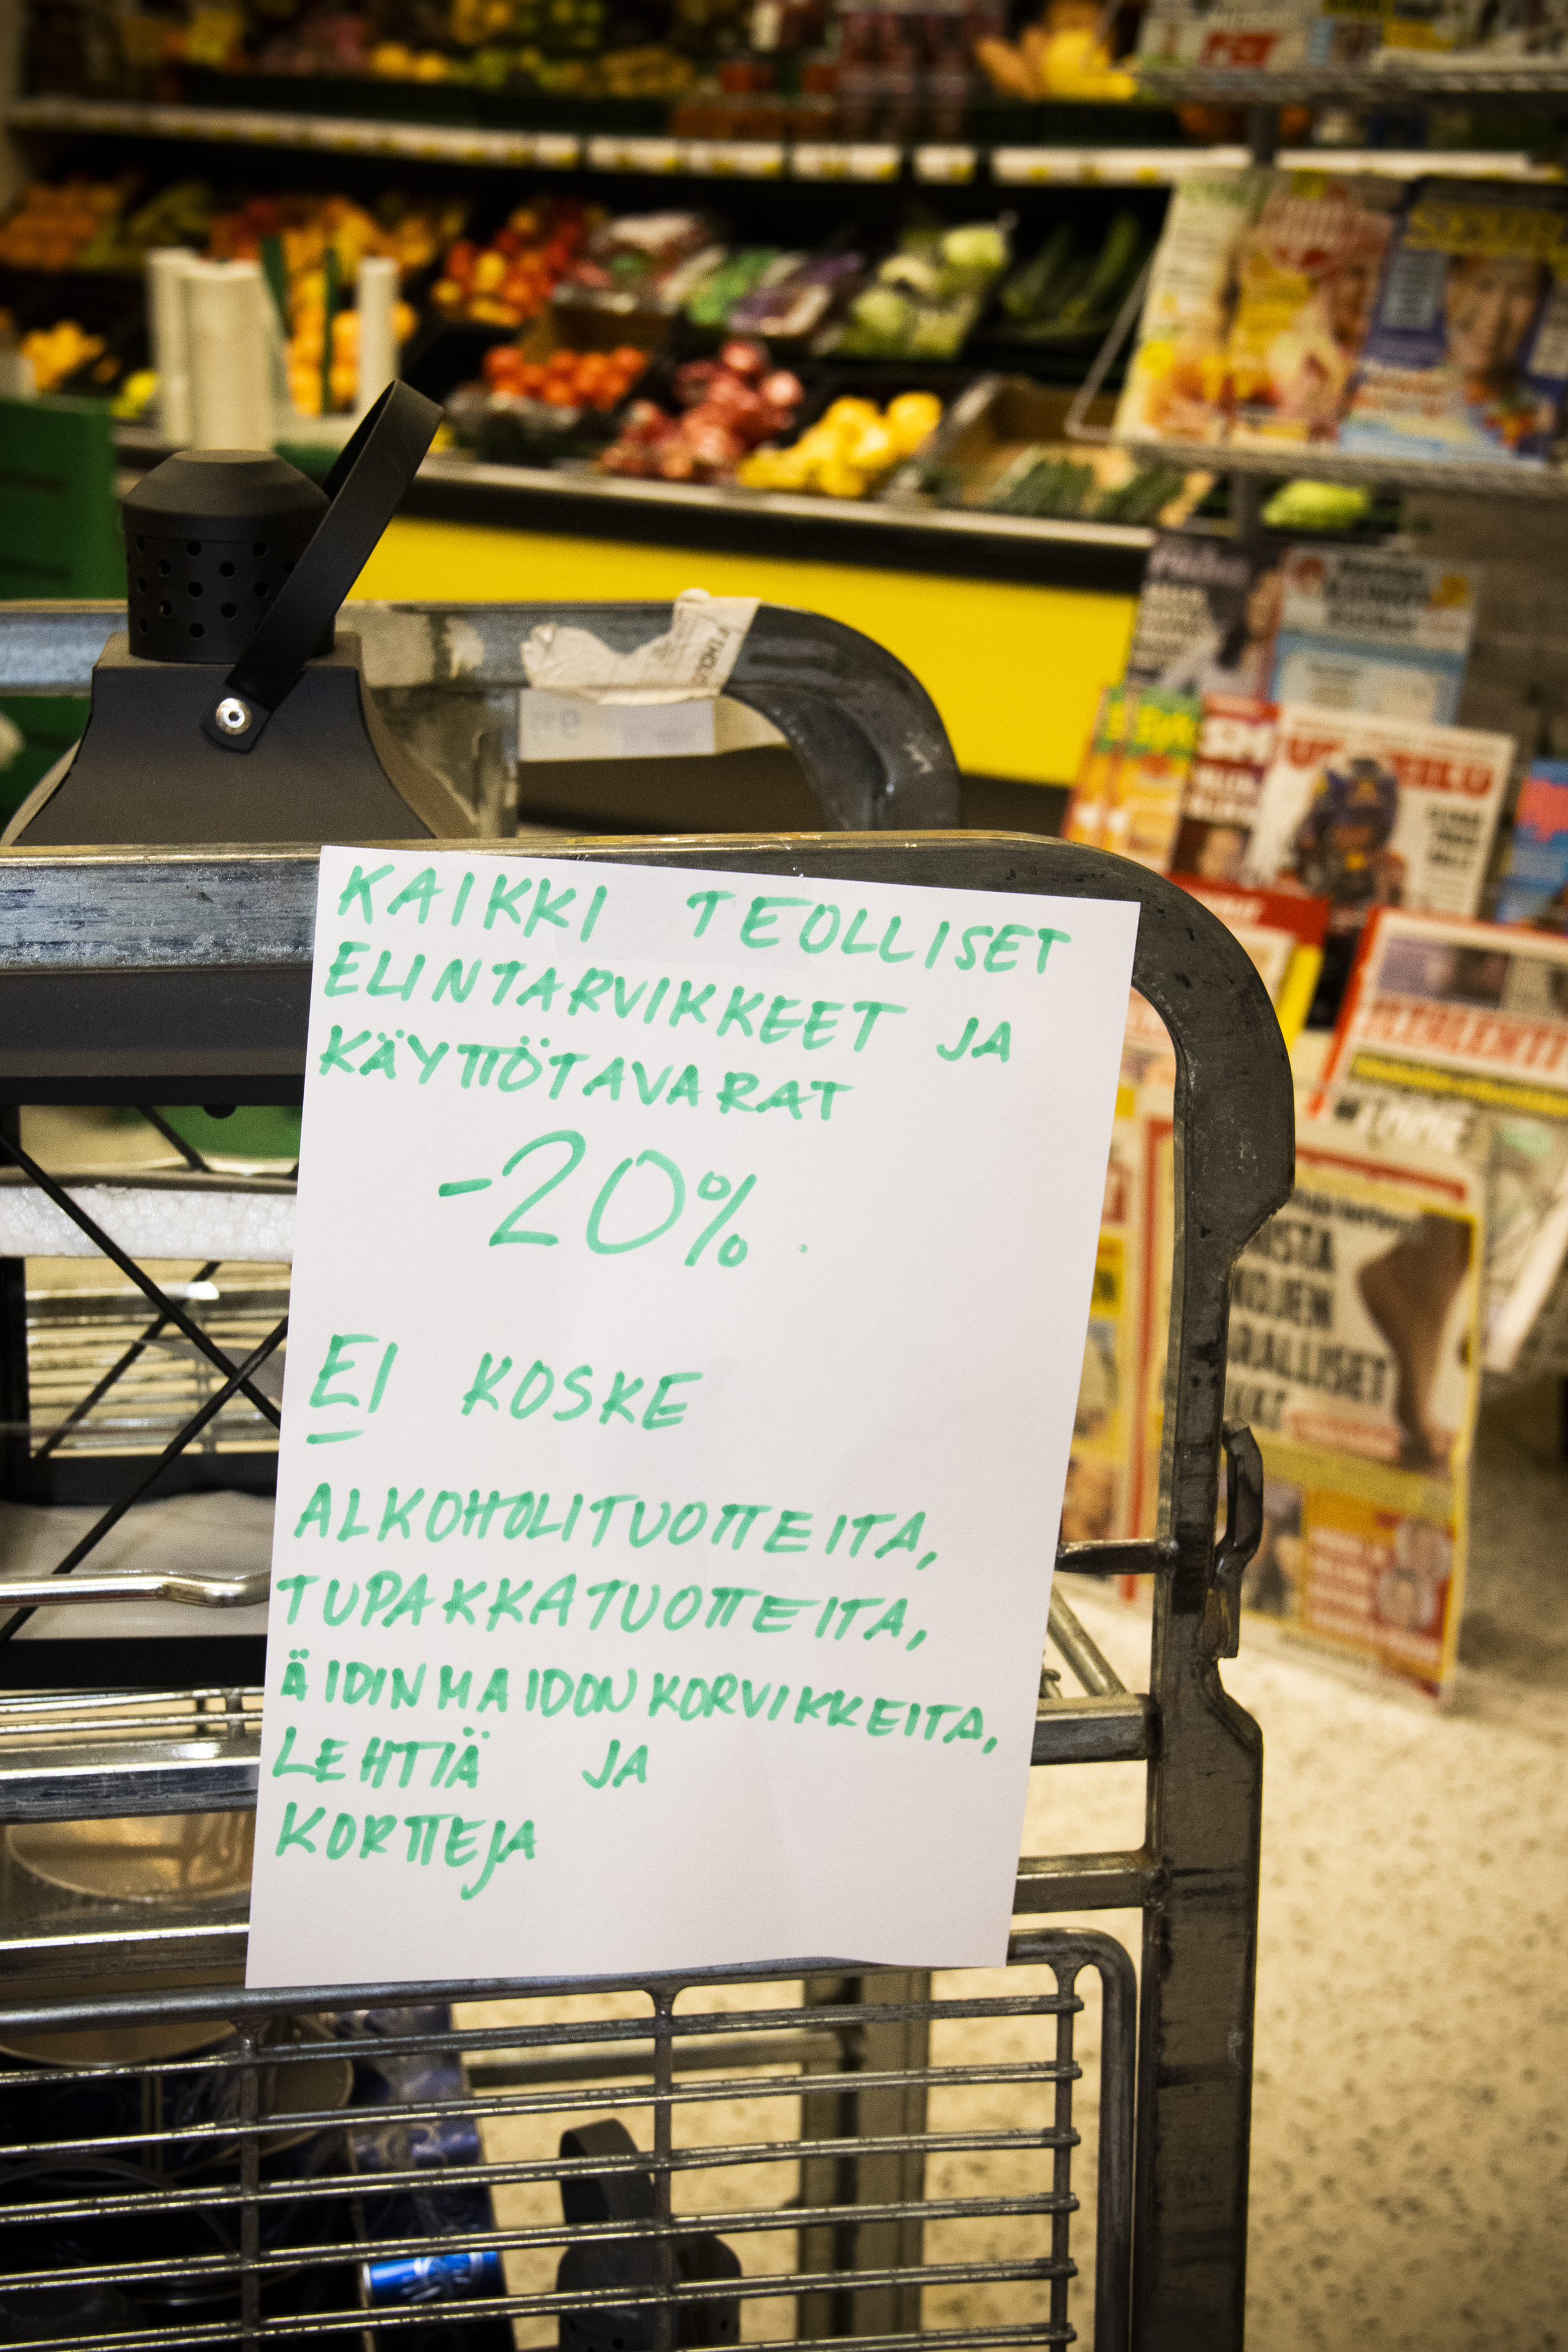 KAIKKI TEOLLISET
ELINTARVIKKEET JA
KÄYTTÖTAVARAT
-20%
EI KOSKE
ALKOHOLITUOTTEITA,
TUPAKKATUOTTEITA,
ÄIDINMAIDONKORVIKKEITA,
LEHTIÄ JA
KORTTEJA